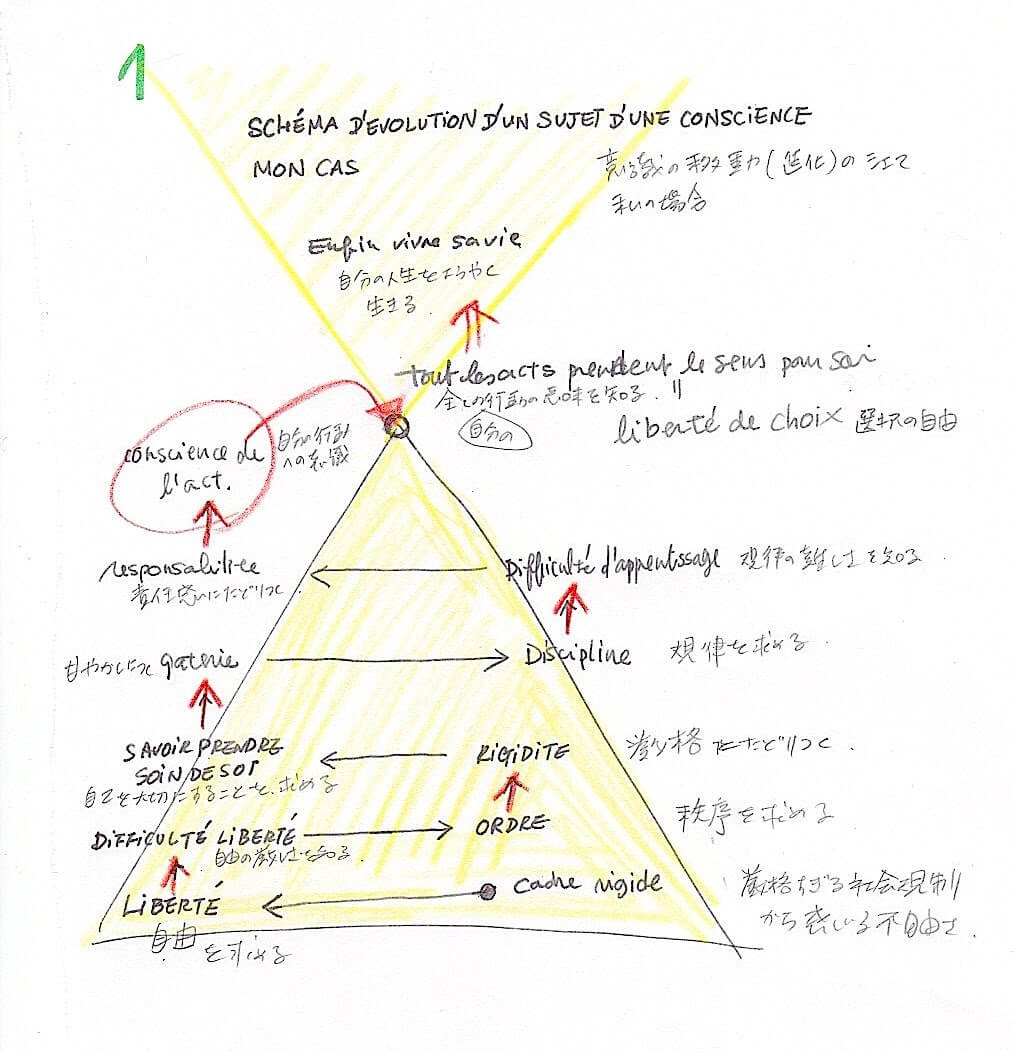 1
SCHÉMA D'EVOLUTION D'UN SUJET D'UNE CONSCIENCE
MON CAS
意識の移動力(進化)の シェマ
私の場合
Enfin vivre sa vie
自分の人生をようやく
生きる
tout les acts prendent le sens pour soi
全ての行動の意味を知る 〃
自分の
liberté de choix 選択の自由
conscience de
l'act.
自分の行動
への意識
responsabilitée
責任感にたどりつく
Difficulté d'apprentissage 規律の難しさを知る.
gaterie
Discipline 規律を求める.
SAVOIR PRENDRE
SOIN DE SOI
自己を大切にすることを求める
RIGIDITE 厳格にたどりつく.
DIFFICULTÉ LIBERTÉ
自由の難しさを知る.
ORDRE 秩序を求める
LIBERTÉ
自由を求める
cadre rigide 厳格すぎる社会規制
から感じる不自由さ.